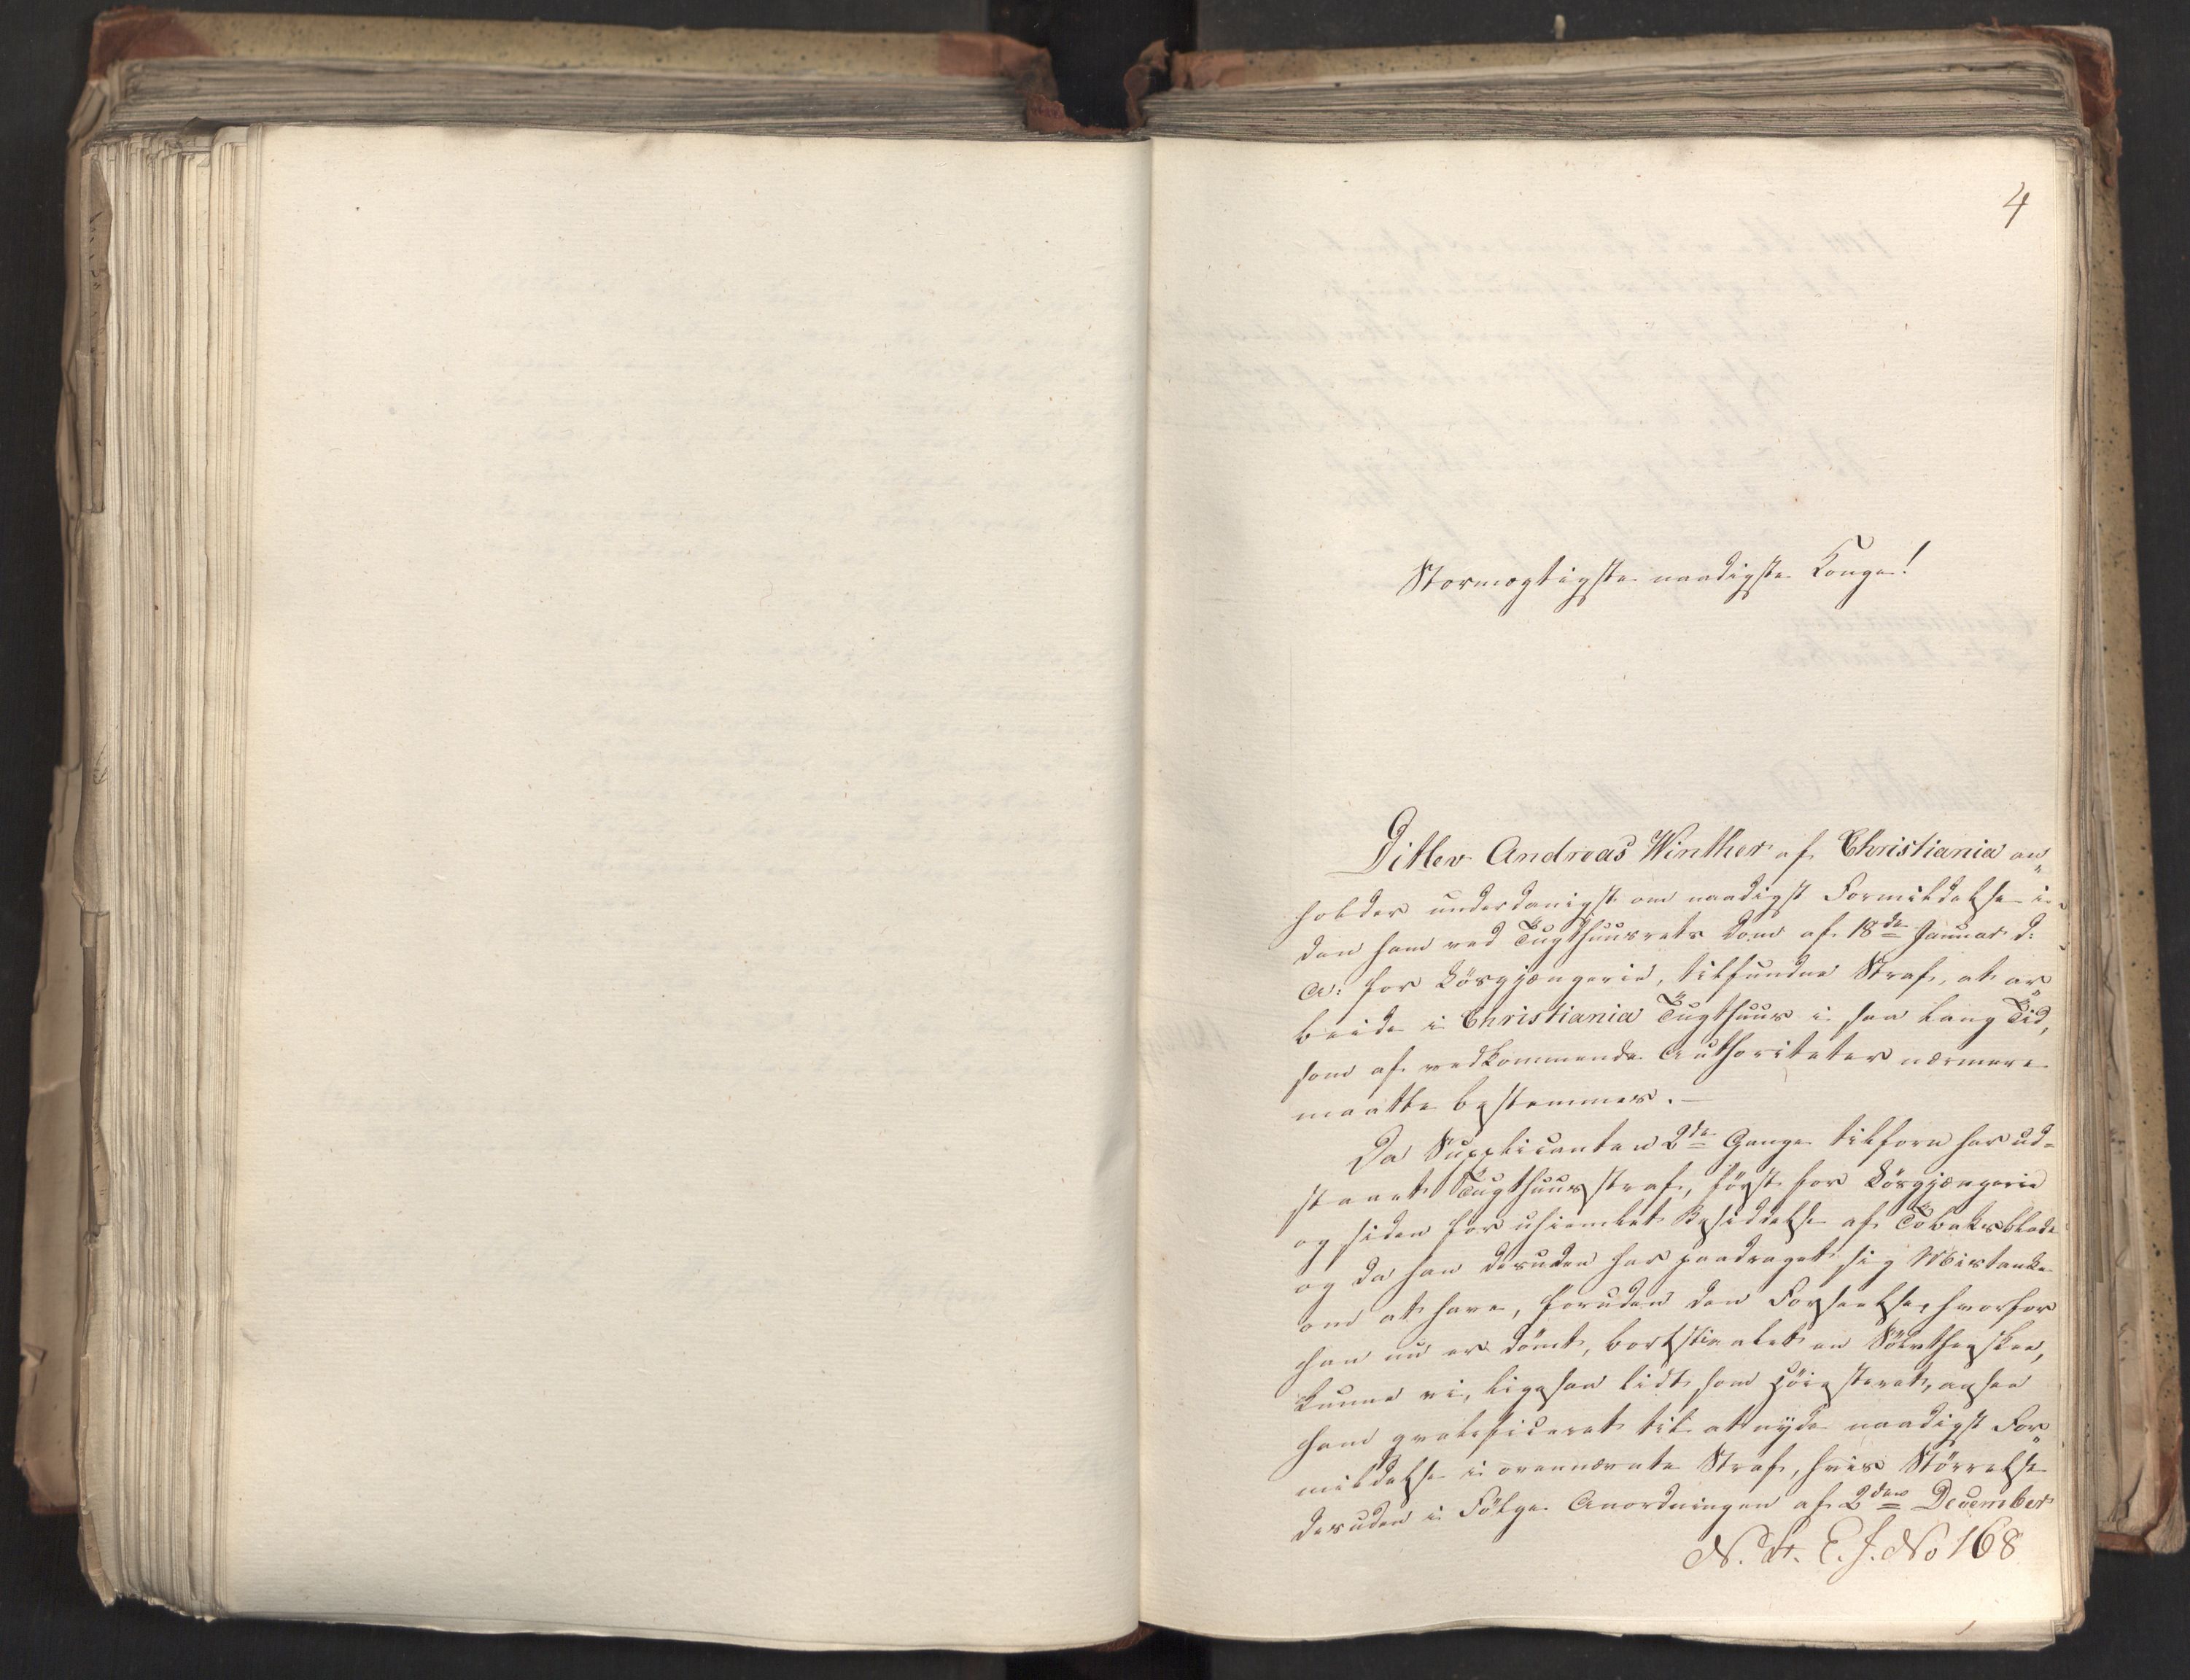 4
Stormægtigste naadigste Konge!
Ditlev Andreas Winther af Christiania an„
holder underdanigst om naadigst Formildelse i
den ham ved Tugthuusrets Dom af 18de Januar d:
A: for Lösgjængerie, tilfundne Straf, at ar„
beide i Christiania Tugthuus i saa lang Tid,
som af vedkommende Authoriteter nærmere
maatte bestemmes.—
Da Supplicanten 2de Gange tilforn har ud-
staaet Tugthuusstraf, først for Lösgjængerie
og siden for uhiemlet Besiddelse af Tobaksblade
og da han desuden har paadraget sig Mistanke
om at have, foruden den Forseelse, hvorfor
han nu er dömt, bortstiaalet en Sölvtheeskee,
kunne vi, ligesaa lidt som Höiesteret, ansee
ham qvalificeret til at nyde naadigst For„
mildelse i ovennævnte Straf, hvis Störrelse
desuden i Fölge Anordningen af 2den December
N. St. E. J. No 168